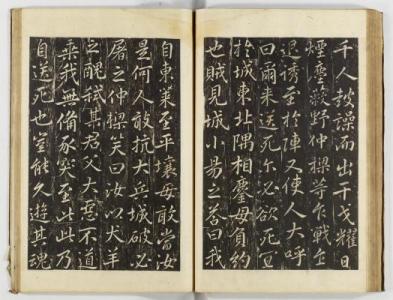 千人鼓譟而出干戈耀日
煙塵蔽野仲樑等乍戰乍
退誘至於陣又使人大呼
曰爾來送死尓必欲死宜
於城東北隅相鏖毋負約
也賊見城小易之答曰我
自東萊至平壤毋敢當汝
是何人敢抗大兵城破必
屠之仲樑笑曰汝以犬羊
之醜弒其君父大惡不道
乘我無備豕突至此此乃
自送死也豈能久遊其魂